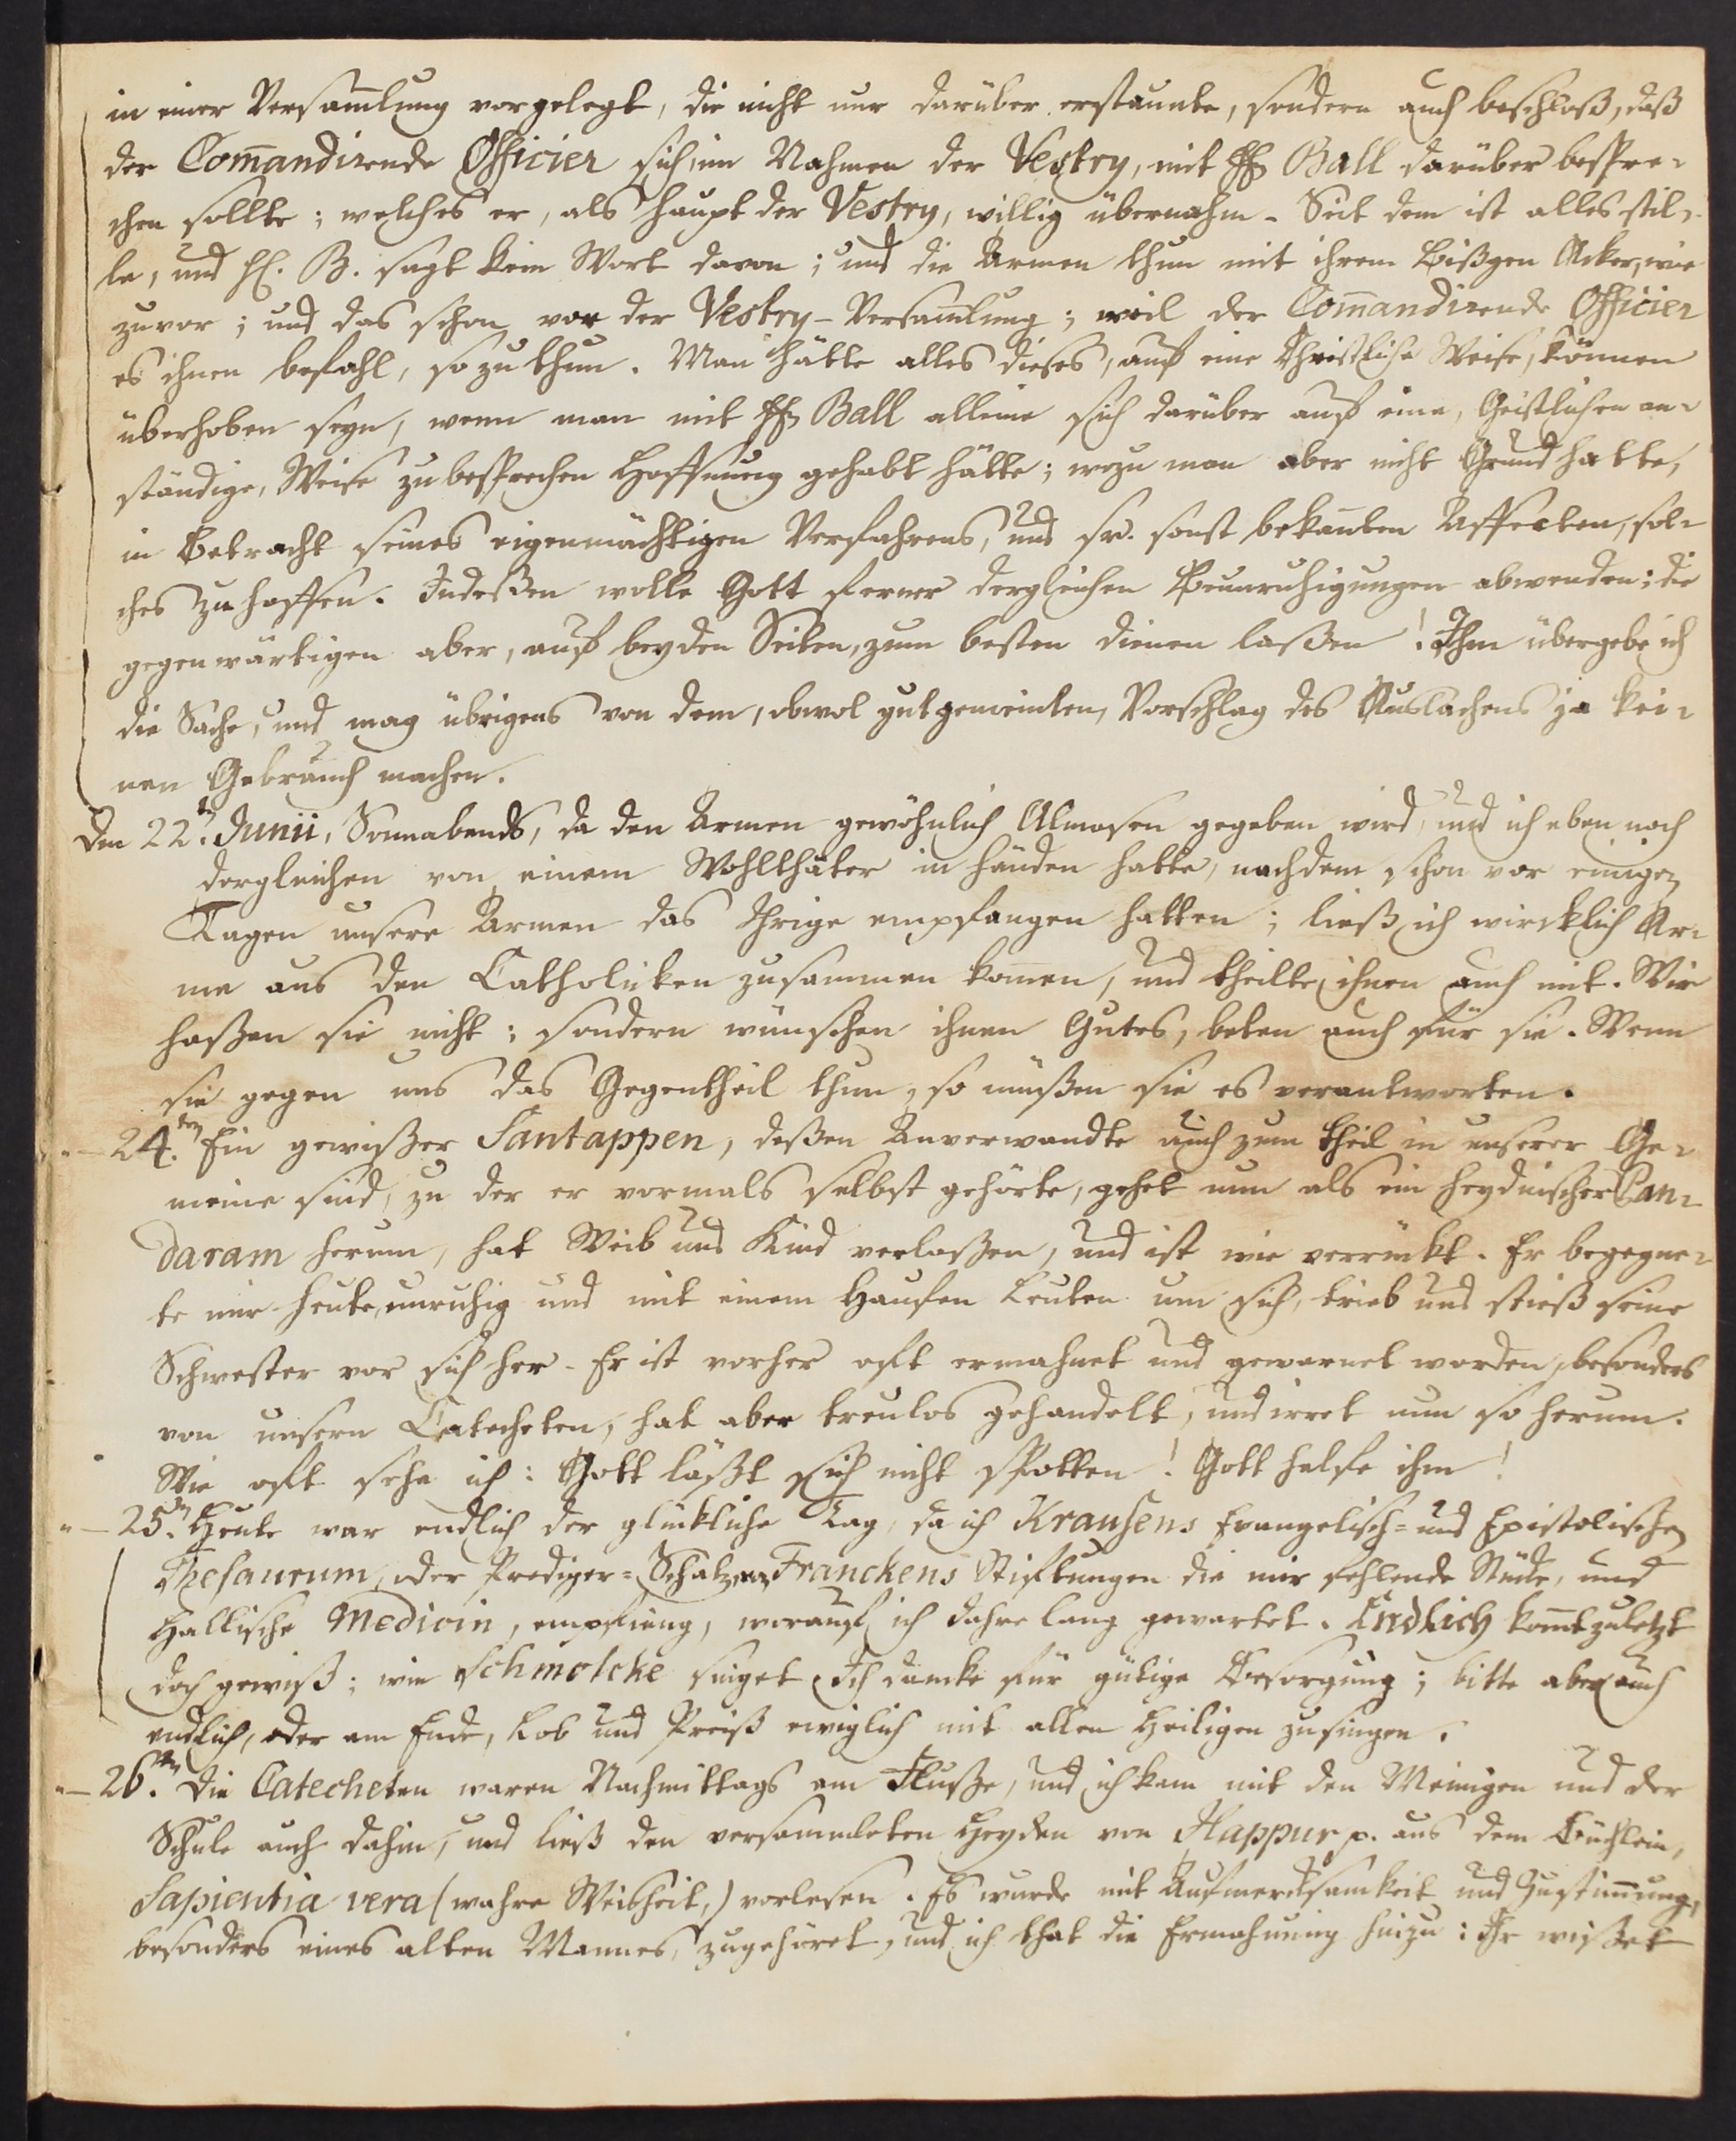 in einer Versam̃lung vorgelegt, die nicht nur darüber erstaunte, sondern auch beschloß, daß
der Com̃andirende Officier sich, im Nahmen der Vestry, mit H. Ball darüber bespre-
chen sollte; welches er, als Haupt der Vestry, willig übernahm. Seit dem ist alles stil-
le, und H. B. sagt kein Wort davon; und die Armen thun mit ihrem Bißgen Acker, wie
zuvor; und das schon vor der Vestry-Versam̃lung; weil der Com̃andirende Officier
es ihnen befahl, so zu thun. Man hätte alles dieses, auf eine Christliche Weise, können
überhoben seyn, wenn man mit H. Ball alleine sich darüber auf eine, Geistlichen an-
ständige, Weise zu besprechen Hoffnung gehabt hätte; wozu man aber nicht Grund hatte,
in Betracht seines eigenmächtigen Verfahrens, und sr. sonst bekan̄ten Affecten, sol-
ches zu hoffen. Indeßen wolle Gott ferner dergleichen Beunruhigungen abwenden; die
gegenwärtigen aber, auf beyden Seiten, zum besten dienen laßen! Ihm übergebe ich
die Sache, und mag übrigens von dem, obwol gutgemeinten, Vorschlag des Auslachens ja kei-
nen Gebrauch machen.
Den 22t. Junii, Sonnabends, da den Armen gewöhnlich Almosen gegeben wird, und ich eben noch
dergleichen von einem Wohlthäter in Händen hatte, nachdem schon vor einigen
Tagen unsere Armen das Ihrige empfangen hatten; ließ ich wircklich Ar-
me aus den Catholicken zusammen kom̃en, und theilte ihnen auch mit. Wir
haßen sie nicht; sondern wünschen ihnen Gutes, beten auch für sie. Wenn
sie gegen uns das Gegentheil thun, so müßen sie es verantworten.
"— 24.ten Ein gewißer Santappen, deßen Anverwandte auch zum theil in unserer Ge-
meine sind, zu der er vormals selbst gehörte, gehet nun als ein heydnischer Pan-
daram herum, hat Weib und Kind verlaßen, und ist wie verrückt. Er begegne-
te mir heute, unruhig und mit einem Haufen Leuten um sich, trieb und stieß seine
Schwester vor sich her. Er ist vorher oft ermahnet und gewarnet worden, besonders
von unsern Catecheten, hat aber treulos gehandelt, und irret nun so herum.
Wie oft sehe ich: Gott läßt sich nicht spotten! Gott helfe ihm!
"— 25.ten Heute war endlich der glückliche Tag, da ich Krausens Evangelisch= und Epistolischen
Thesaurum, oder Prediger=Schatz, von Franckens Stiftungen die mir fehlende Stücke, und
Hallische Medicin, empfieng, worauf ich Jahre lang gewartet. Endlich kom̃t zuletzt
doch gewiß; wie Schmolcke singet. Ich dancke für gütige Besorgung; bitte aber auch
endlich, oder am Ende, Lob und Preiß ewiglich mit allen Heiligen zu singen.
"— 26.ten Die Catecheten waren Nachmittags am Fluße, und ich kam mit den Meinigen und der
Schule auch dahin, und ließ den versammleten Heyden von Nappur p. aus dem Büchlein,
Sapientia vera (wahre Weisheit,) vorlesen. Es wurde mit Aufmercksamkeit und Zustim̃ung,
besonders eines alten Mannes, zugehöret, und ich that die Ermahnung hinzu: Ihr wißet